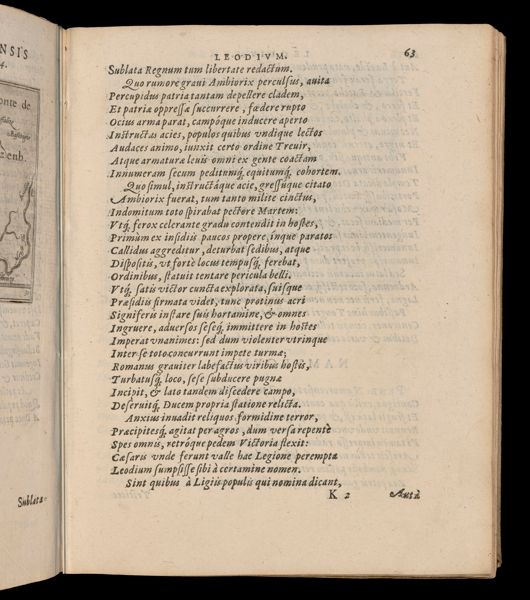 ENSIS
4.
onte de
zenb.
Sublata
LEODIVM. 63
Sublata Regnum tum libertate redactum.
Quo rumore gravi Ambiorix perculsus, avita
Percupidus patria tantam depellere cladem,
Et patriæ oppressæ succurrere, fædere rupto
Ocius arma parat, campóque inducere aperto
Instructas acies, populos quibus vndique lectos
Audaces animo, iunxit certo ordine Trevir,
Atque armaturæ levis omni ex gente coactam
Innumeram secum peditumq́, equitumq́, cohortem.
Quo simul, instructáque acie, gressúque citato
Ambiorix fuerat, tum tanto milite cinctus,
Indomitum toto spirabat pectore Martem:
Vtq́, ferox celerante gradu contendit in hostes,
Primùm ex insidiis paucos propere, inque paratos
Callidus aggreditur, deturbat sedibus, atque
Dispositis, vt fortè locus tempusq́, ferebat,
Ordinibus, statuit tentare pericula belli.
Vtq́, satis victor cuncta explorata, suisque
Præsidiis firmata videt, tunc protinus acri
Signiferis instare suis hortamine, & omnes
Ingruere, adversos seseq́, immittere in hostes
Imperat vnanimes: sed dum violenter vtrinque
Inter se toto concurrunt impete turmæ;
Romanus graviter labefactus viribus hostis,
Turbatusq́, loco, sese subducere pugnæ
Incipit, & lato tandem discedere campo,
Deseruitq́, Ducem propria statione relicta.
Anxius invadit reliquos formidine terror,
Præcipitesq́, agitat per agros, dum versa repente
Spes omnis, retróque pedem Victoria flexit:
Cæsaris vnde ferunt valle hac Legione peremptæ
Leodium sumpsisse sibi à certamine nomen.
Sint quibus à Ligiis populis qui nomina dicant,
K 2 Aut à